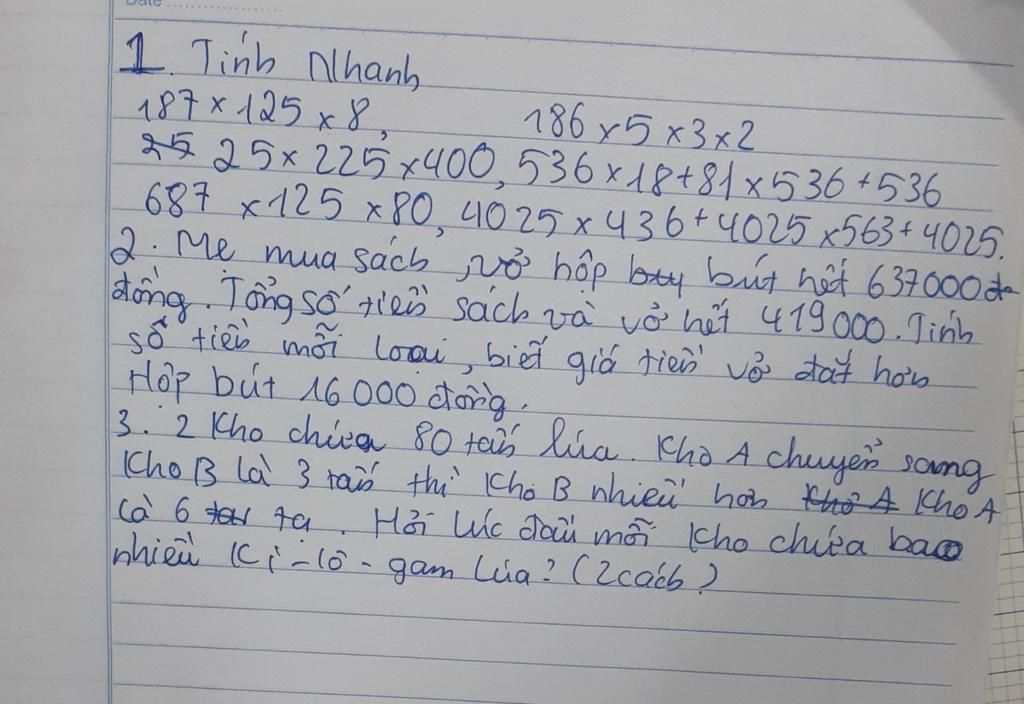 Date
1. Tính Nhanh
187 × 125 × 8, 186 × 5 × 3 × 2
25 25 × 225 × 400, 536 × 18 + 81 × 536 + 536
687 × 125 × 80, 4025 × 436 + 4025 × 563 + 4025.
2. Mẹ mua sách, vở hộp bút hết 637000đ
đồng. Tổng số tiền sách và vở hết 419000. Tính
số tiền mỗi loại, biết giá tiền vở đắt hơn
Hộp bút 16000 đồng.
3. 2 Kho chứa 80 tấn lúa. Kho A chuyển sang
Kho B là 3 tấn thì Kho B nhiều hơn Kho A Kho A
là 6 tạ. Hỏi lúc đầu mỗi Kho chứa bao
nhiêu Ki-lô-gam lúa? (2 cách)